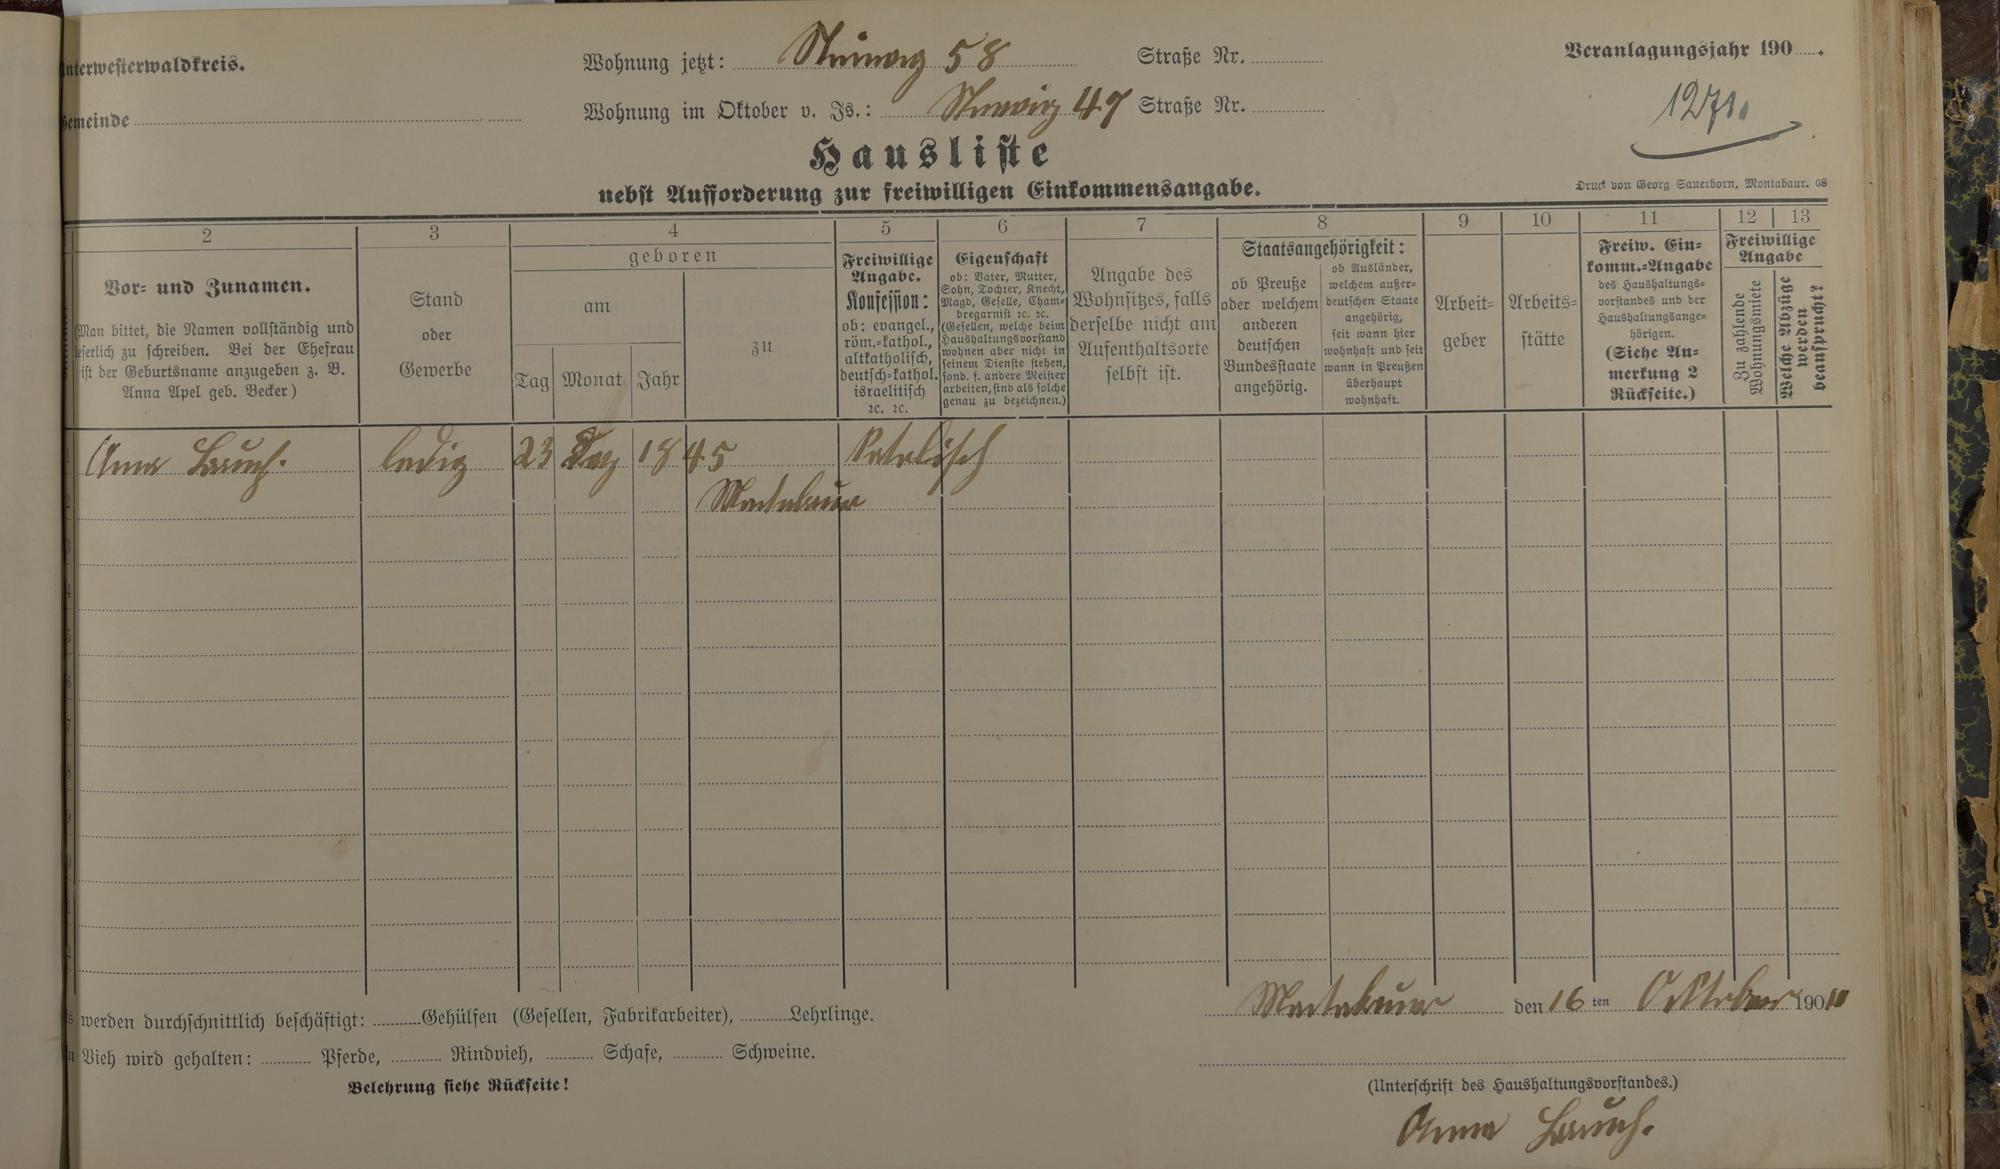 Unterwesterwaldkreis.
Wohnung jetzt: Steinweg 58 Straße Nr.
Veranlagungsjahr 190 .
Gemeinde
Wohnung im Oktober v. Js.: Steinweg 47 Straße Nr.
1271.
Hausliste
nebst Aufforderung zur freiwilligen Einkommensangabe.
Druck von Georg Sauerborn, Montabaur. 08
2 3 4 5 6 7 8 9 10 11 12 13
Vor- und Zunamen.
(Man bittet, die Namen vollständig und
leserlich zu schreiben. Bei der Ehefrau
ist der Geburtsname anzugeben z. B.
Anna Apel geb. Becker)
Stand
oder
Gewerbe
geboren
am
Tag Monat Jahr
zu
Freiwillige
Angabe.
Konfession:
ob: evangel.,
röm.-kathol.,
altkatholisch,
deutsch-kathol.
israelitisch
2c. 2c.
Eigenschaft
ob: Vater, Mutter,
Sohn, Tochter, Knecht,
Magd, Geselle, Cham-
bregarnist 2c. 2c.
(Gesellen, welche beim
Haushaltungsvorstand
wohnen aber nicht in
seinem Dienste stehen,
sond. f. andere Meister
arbeiten, sind als solche
genau zu bezeichnen.)
Angabe des
Wohnsitzes, falls
derselbe nicht am
Aufenthaltsorte
selbst ist.
Staatsangehörigkeit:
ob Preuße
oder welchem
anderen
deutschen
Bundesstaate
angehörig.
ob Ausländer,
welchem außer-
deutschen Staate
angehörig,
seit wann hier
wohnhaft und seit
wann in Preußen
überhaupt
wohnhaft.
Arbeit-
geber
Arbeits-
stätte
Freiw. Ein-
komm.-Angabe
des Haushaltungs-
vorstandes und der
Haushaltungsange-
hörigen.
(Siehe An-
merkung 2
Rückseite.)
Freiwillige
Angabe
Zu zahlende
Wohnungsmiete
Welche Abzüge
werden
beansprucht?
1 Anna Bauch. ledig 23 Dez 1845 Katolisch
2 Montabaur
3
4
5
6
7
8
9
Montabaur den 16 ten Octtober 190 10
Es werden durchschnittlich beschäftigt: Gehülfen (Gesellen, Fabrikarbeiter), Lehrlinge.
An Vieh wird gehalten: Pferde, Rindvieh, Schafe, Schweine.
Belehrung siehe Rückseite!
(Unterschrift des Haushaltungsvorstandes.)
Anna Bauch.